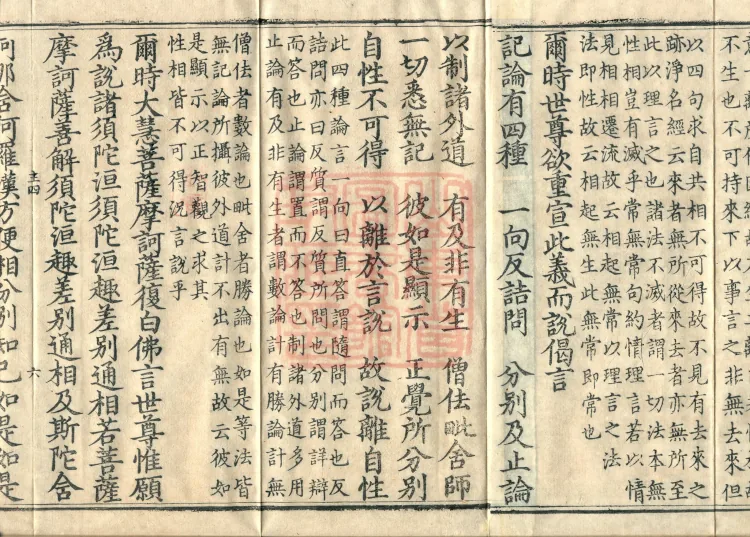 不生也不可持來下以事言之非無去來但
以四句求自共相不可得故不見有去來之
跡淨名經云來者無所從來去者亦無所至
此以理言之也諸法不滅者謂一切法本無
性相豈有滅乎常無常句約情理言若以情
見相相遷流故云相起無常以理言之法
法即性故云相起無生此無常即常也
爾時世尊欲重宣此義而說偈言
記論有四種　一向反詰問　分別及止論
以制諸外道　有及非有生　僧佉毗舍師
一切悉無記　彼如是顯示　正覺所分別
自性不可得　以離於言說　故說離自性
此四種論言一向曰直答謂隨問而答也反
詰問亦曰反質謂反質所問也分別謂詳辯
而答也止論謂置而不答也制諸外道多用
止論有及非有生者謂數論計有勝論計無
僧佉者數論也毗舍者勝論也如是等法皆
無記論所攝彼外道計不出有無故云彼如
是顯示以正智觀之求其
性相皆不可得況言說乎
爾時大慧菩薩摩訶薩復白佛言世尊惟願
爲說諸須陀洹須陀洹趣差別通相若菩薩
摩訶薩善解須陀洹趣差別通相及斯陀含
六
阿那含阿羅漢方便相分別知已如是如是